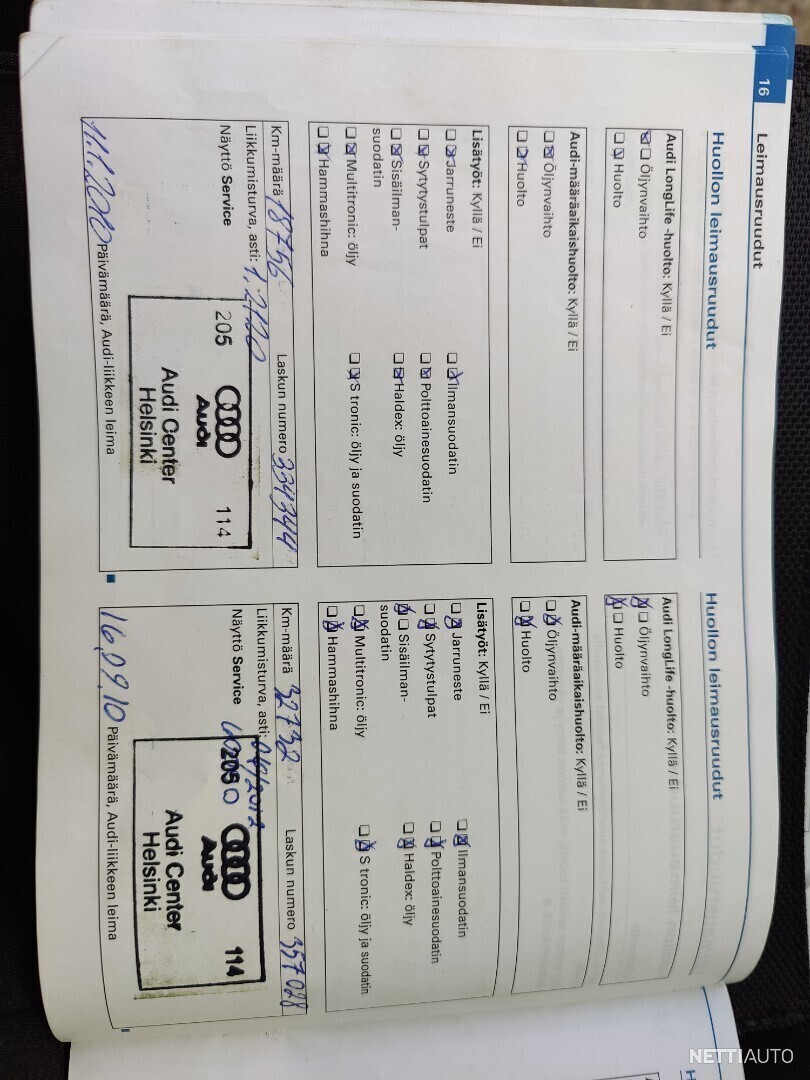 16
Leimausruudut
Huollon leimausruudut
Audi LongLife -huolto: Kyllä / Ei
Öljynvaihto
Huolto
Audi-määräaikaishuolto: Kyllä / Ei
Öljynvaihto
Huolto
Lisätyöt: Kyllä / Ei
Jarruneste
Ilmansuodatin
Sytytystulpat
Polttoainesuodatin
Sisäilman-
suodatin
Haldex: öljy
Multitronic: öljy
S tronic: öljy ja suodatin
Hammashihna
Km-määrä 18756 Laskun numero 334344
Liikkumisturva, asti:
Näyttö Service
205 Audi 114
Audi Center
Helsinki
11.1.2010 Päivämäärä, Audi-liikkeen leima
Huollon leimausruudut
Audi LongLife -huolto: Kyllä / Ei
Öljynvaihto
Huolto
Audi-määräaikaishuolto: Kyllä / Ei
Öljynvaihto
Huolto
Lisätyöt: Kyllä / Ei
Jarruneste
Ilmansuodatin
Sytytystulpat
Polttoainesuodatin
Sisäilman-
suodatin
Haldex: öljy
Multitronic: öljy
S tronic: öljy ja suodatin
Hammashihna
Km-määrä 32732 Laskun numero 357028
Liikkumisturva, asti: 04/2012
Näyttö Service
205 Audi 114
Audi Center
Helsinki
16.09.10 Päivämäärä, Audi-liikkeen leima
NETTIAUTO